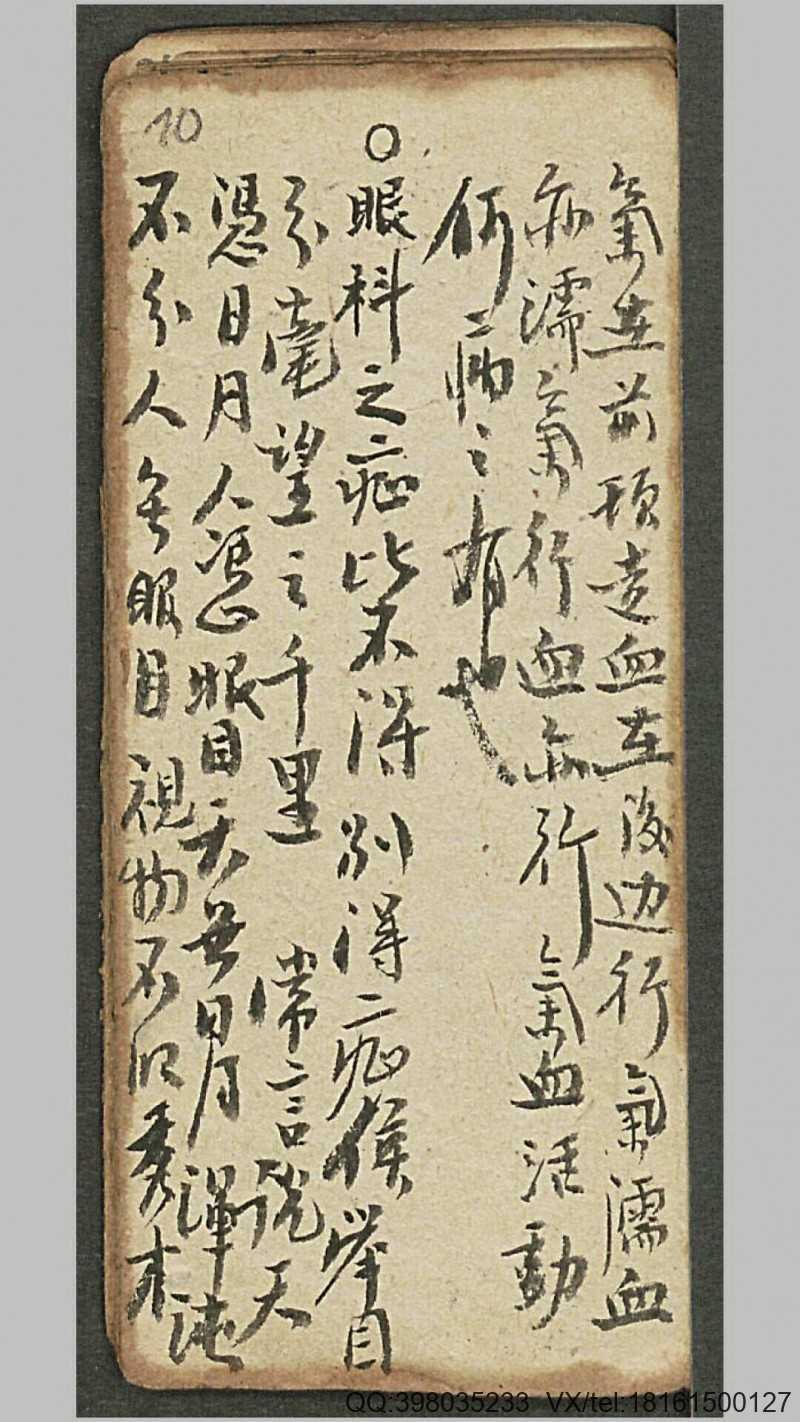 氣在前項走血在後边行氣濡血
亦濡氣行血亦行氣血活動
何病之有也
○眼科之症比不得別得症候举目
分毫望之千里常言說天
憑日月人憑眼目天無日月渾沌
不分人無眼目視物不
10
QQ:398035233 VX/tel:18161500127